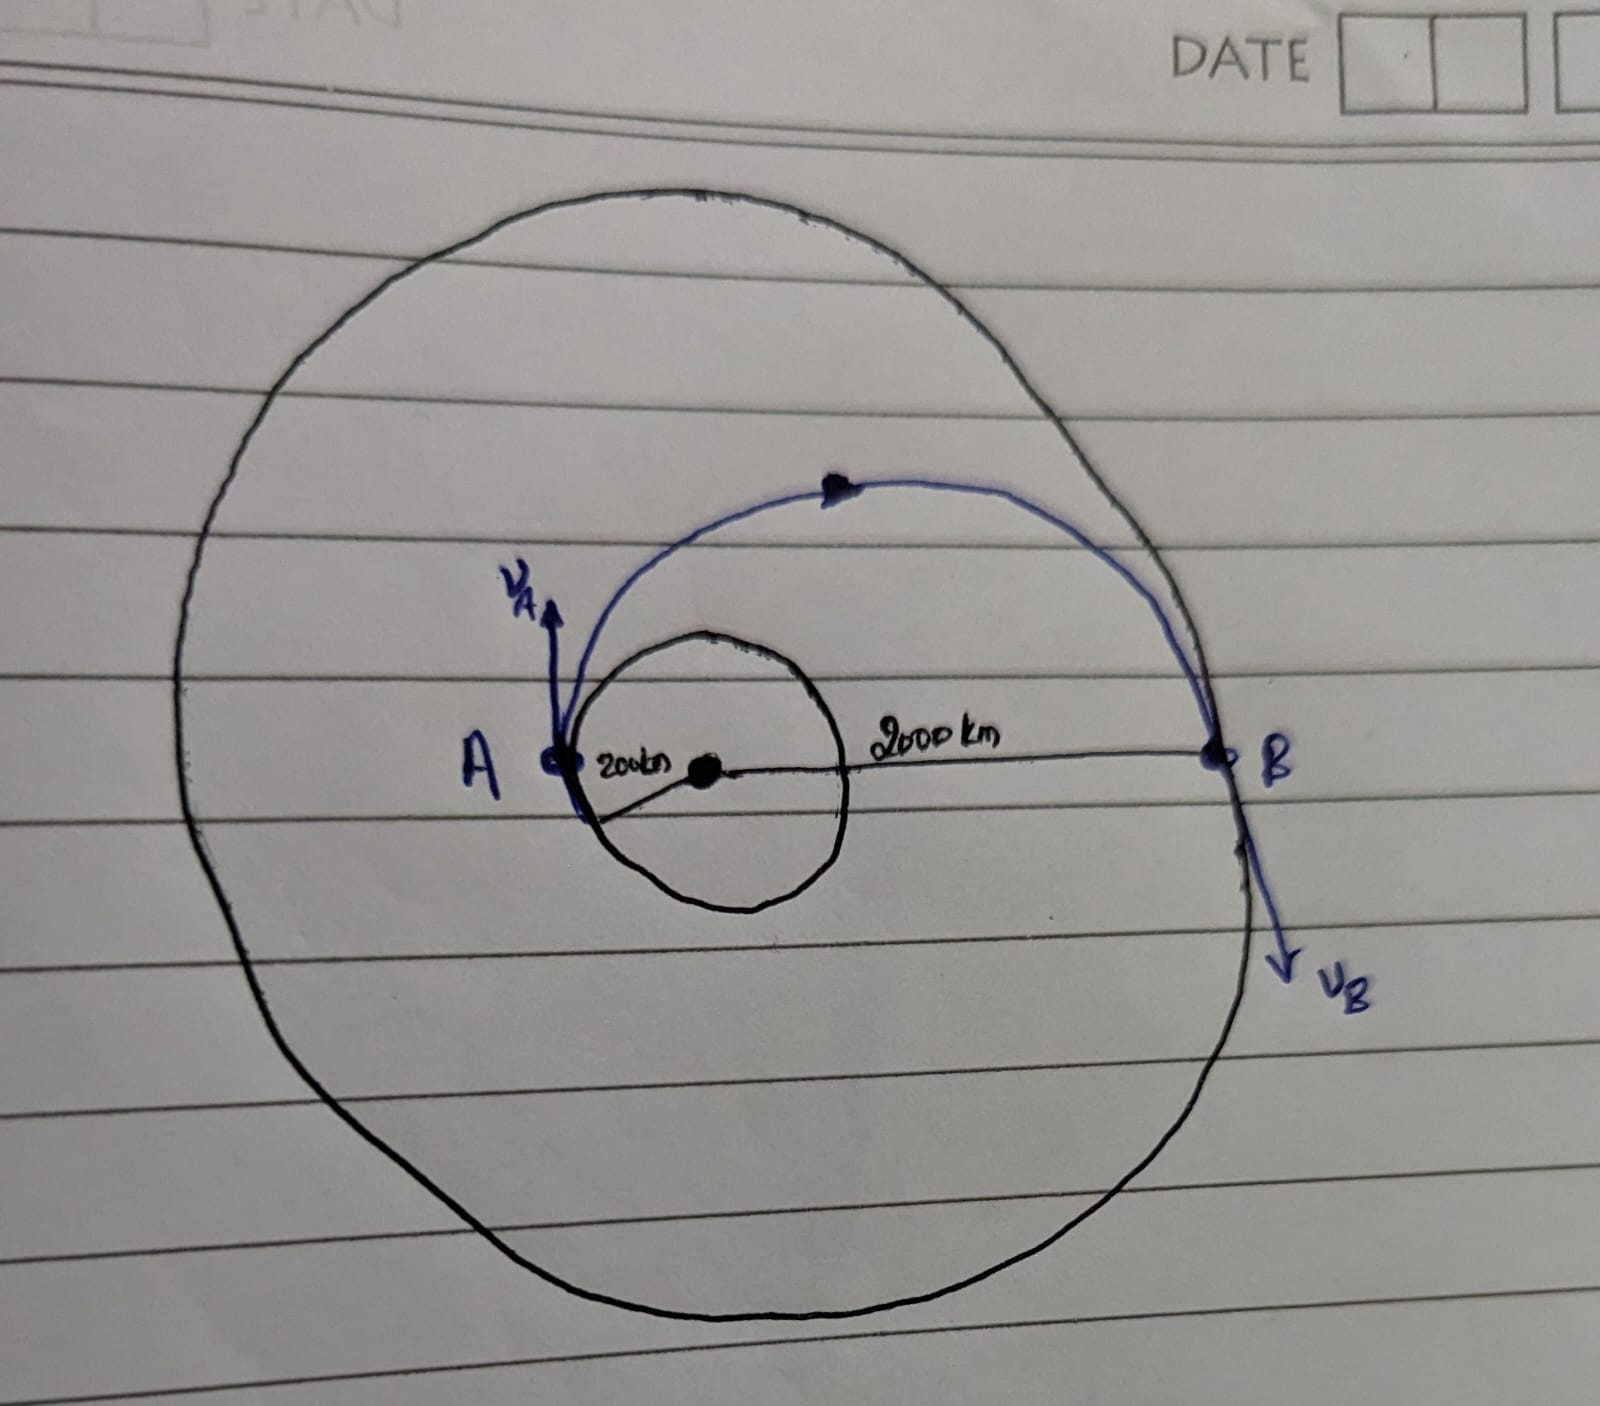 DATE
V_A
A
200km
2000km
B
V_B